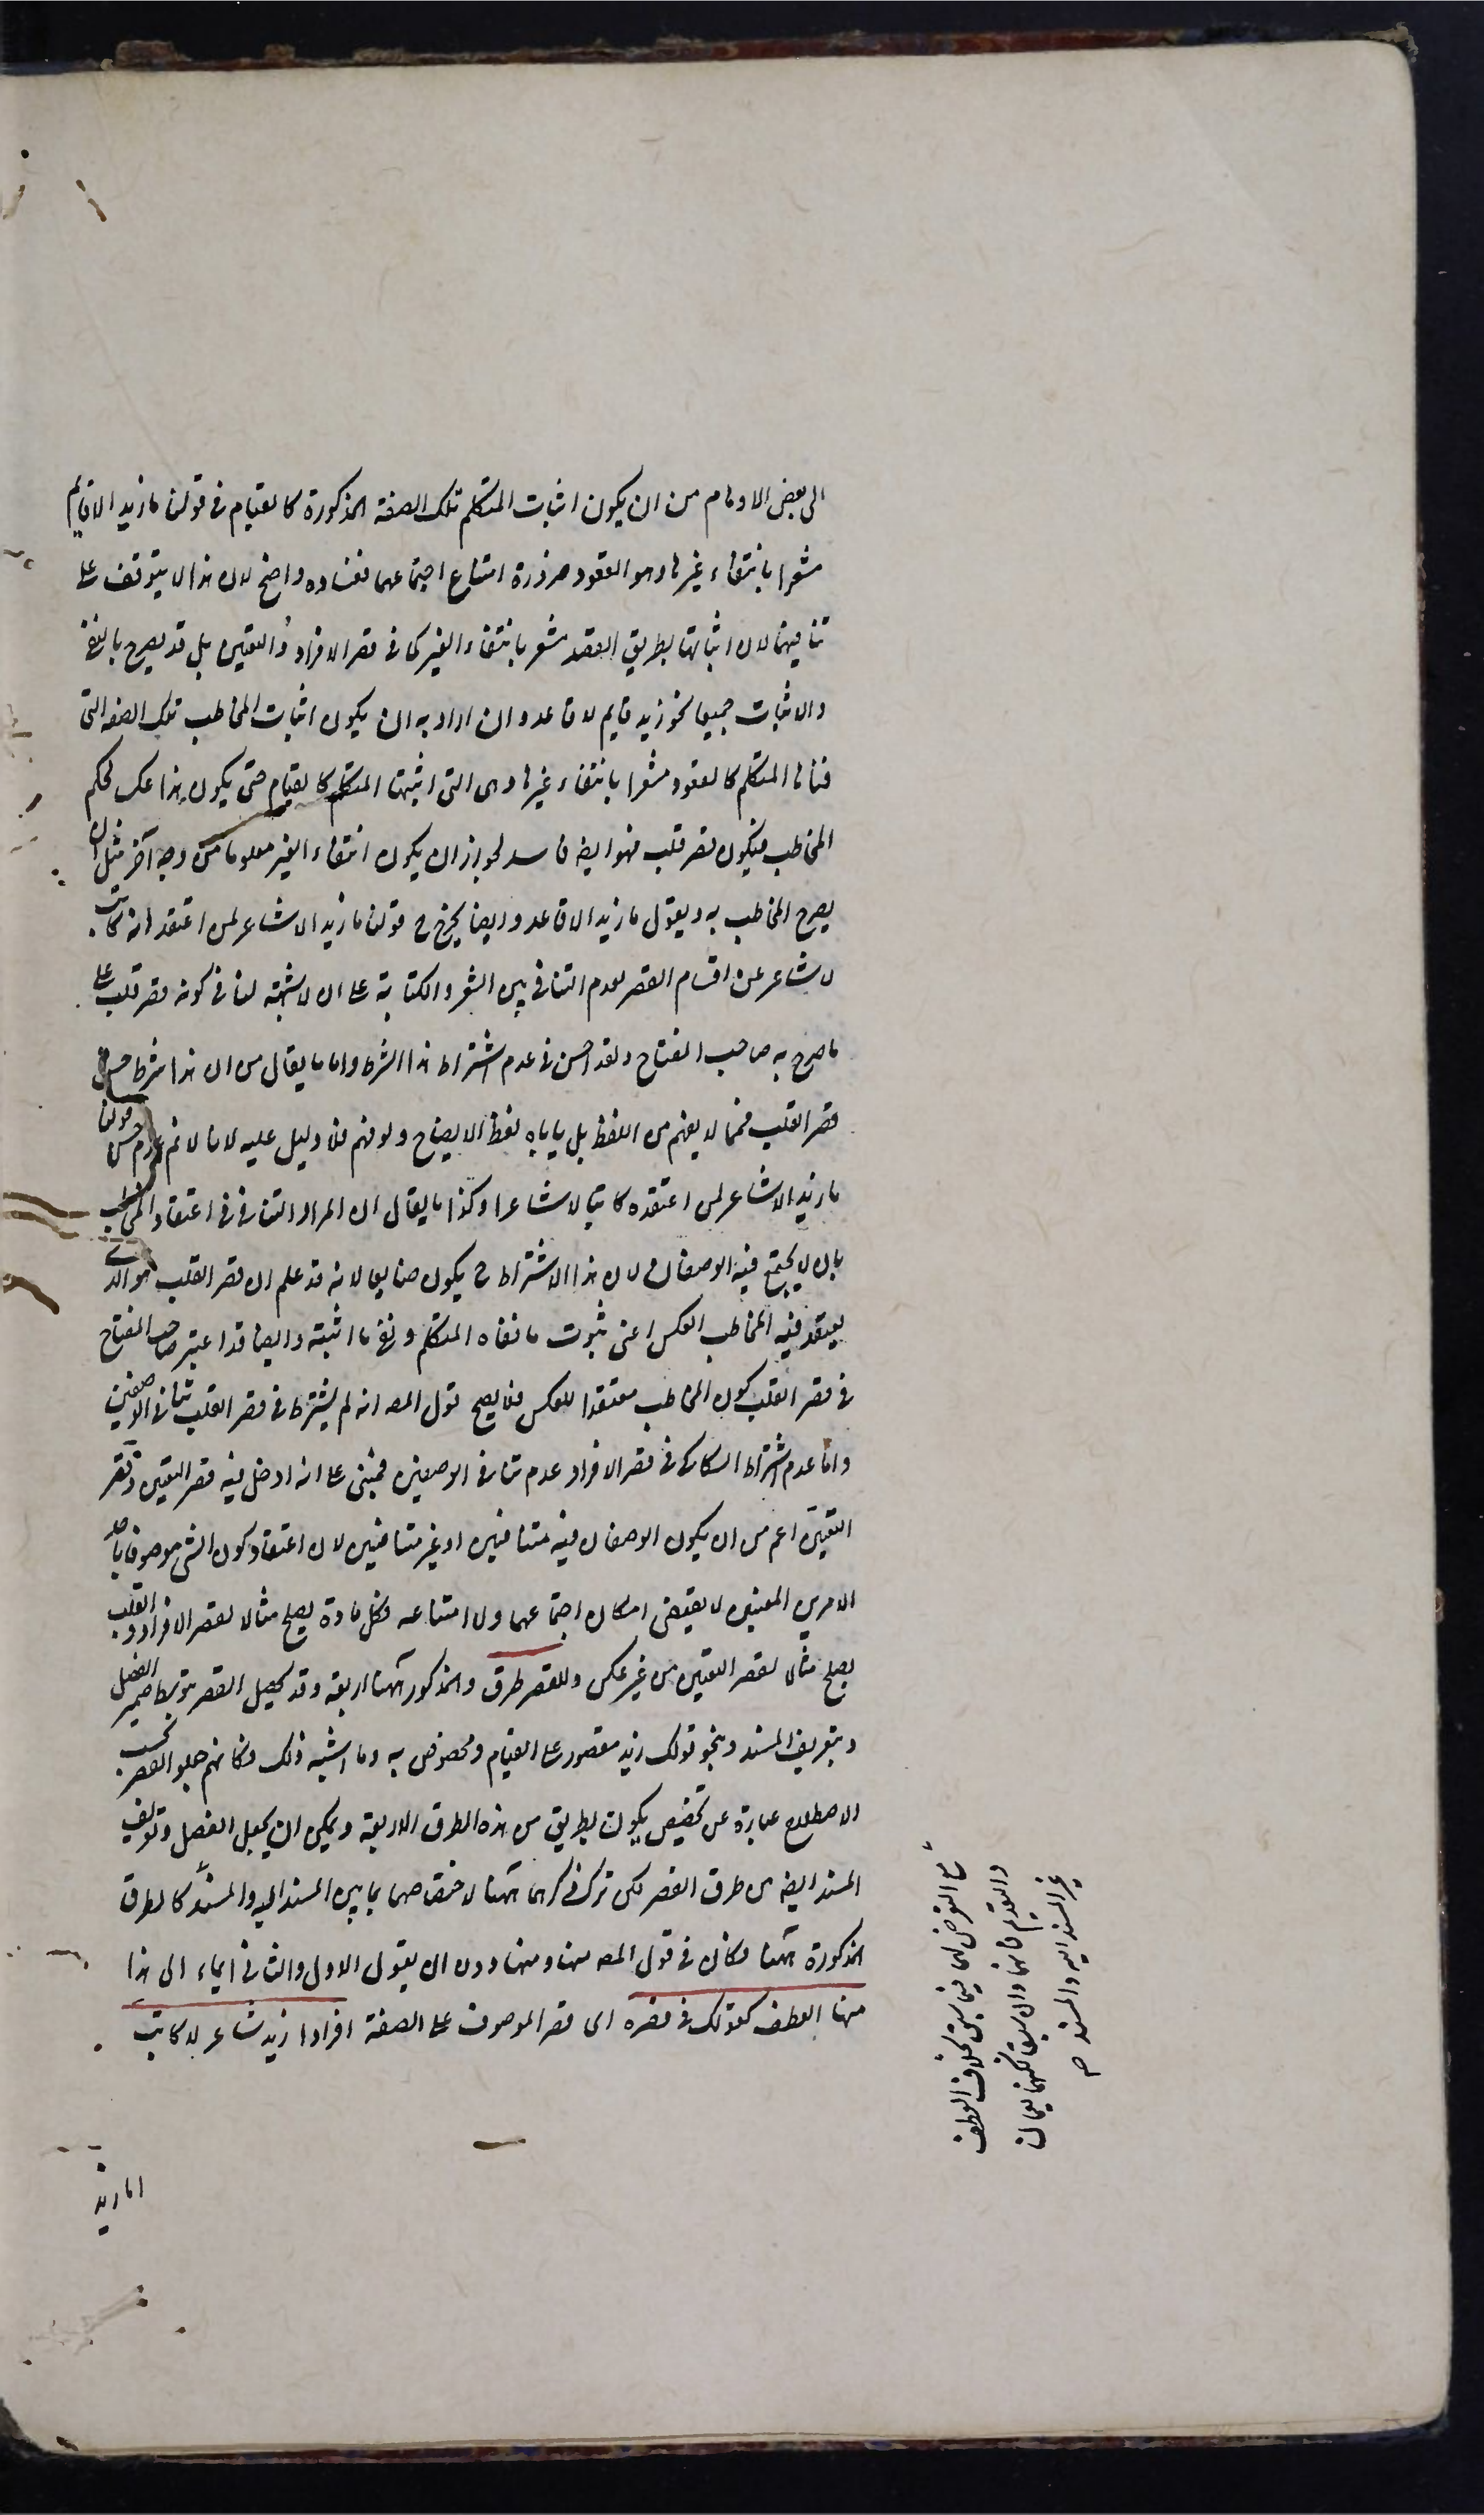 الى بعض الاوهام من ان يكون اثبات المتكلم تلك الصفة المذكورة كالقيام فى قولنا ما زيد الا قايم
مشعرا بانتفاء غيرها وهو القعود ضرورة امتناع اجتماعهما ففساده واضح لان هذا لا يتوقف على
تنافيهما لان اثباتها بطريق القصر مشعر بانتفاء الغير كما فى قصر الافراد والتعيين بل قد يصرح بالنفى
والاثبات جميعا نحو زيد قايم لا قاعد وان اراد به ان يكون اثبات المخاطب تلك الصفة التى
نفاها المتكلم كالقعود مشعرا بانتفاء غيرها وهى التى اثبتها المتكلم كالقيام حتى يكون هذا عكس لحكم
المخاطب فيكون قصر قلب فهو ايضا فاسد لجواز ان يكون انتفاء الغير معلوما من وجه آخر مثل ان
يصرح المخاطب به ويقول ما زيد الا قاعد وايضا يخرج ح قولنا ما زيد الا شاعر لمن اعتقد انه كاتب
لا شاعر عن اقسام القصر لعدم التنافى بين الشعر والكتابة على ان لا شبهة لنا فى كونه قصر قلب على
ما صرح به صاحب المفتاح ولقد احسن فى عدم اشتراط هذا الشرط واما ما يقال من ان هذا شرط حسن
قصر القلب فمما لا يفهم من اللفظ بل ياباه لفظ الايضاح ولو فهم فلا دليل عليه لانا لا نم عدم حسن قولنا
ما زيد الا شاعر لمن اعتقده كاتبا لا شاعرا وكذا ما يقال ان المراد التنافى فى اعتقاد المخاطب
بان لا يجتمع فيه الوصفان لان هذا الاشتراط ح يكون ضايعا لانه قد علم ان قصر القلب هو الذى
يعتقد فيه المخاطب العكس اعنى ثبوت ما نفاه المتكلم ونفى ما اثبته وايضا قد اعتبر صاحب المفتاح
فى قصر القلب كون المخاطب معتقدا للعكس فلا يصح قول المصه انه لم يشترط فى قصر القلب تنافى الوصفين
واما عدم اشتراط السكاكى فى قصر الافراد عدم تنافى الوصفين فمبنى على انه ادخل فيه قصر التعيين وقصر
التعيين اعم من ان يكون الوصفان فيه متنافيين او غير متنافيين لان اعتقاد كون الشى موصوفا باحد
الامرين المعينين لا يقتضى امكان اجتماعهما ولا امتناعه فكل مادة يصلح مثالا لقصر الافراد والقلب
يصلح مثالا لقصر التعيين من غير عكس وللقصر طرق والمذكور ههنا اربعة وقد يحصل القصر بتوسط ضمير الفصل
وبتعريف المسند وبنحو قولك زيد مقصور على القيام ومخصوص به وما اشبه ذلك فكانهم جعلوا القصر بحسب
الاصطلاح عبارة عن تخصيص يكون بطريق من هذه الطرق الاربعة ويمكن ان يجعل الفصل وتعريف
المسند ايضا من طرق القصر لكن ترك ذكرهما ههنا لاختصاصهما بما بين المسند اليه والمسند كالطرق
المذكورة ههنا فكان فى قول المصه منها ومنها دون ان يقول الاول والثانى ايماء الى هذا
منها العطف كقولك فى قصره اى قصر الموصوف على الصفة افرادا زيد شاعر لا كاتب
مع التعرض لهما فيما سبق بخلاف العطف
والتقديم فانهما وان سبقا لكنهما يعمان
غير المسند اليه والمسند ص
او ما زيد